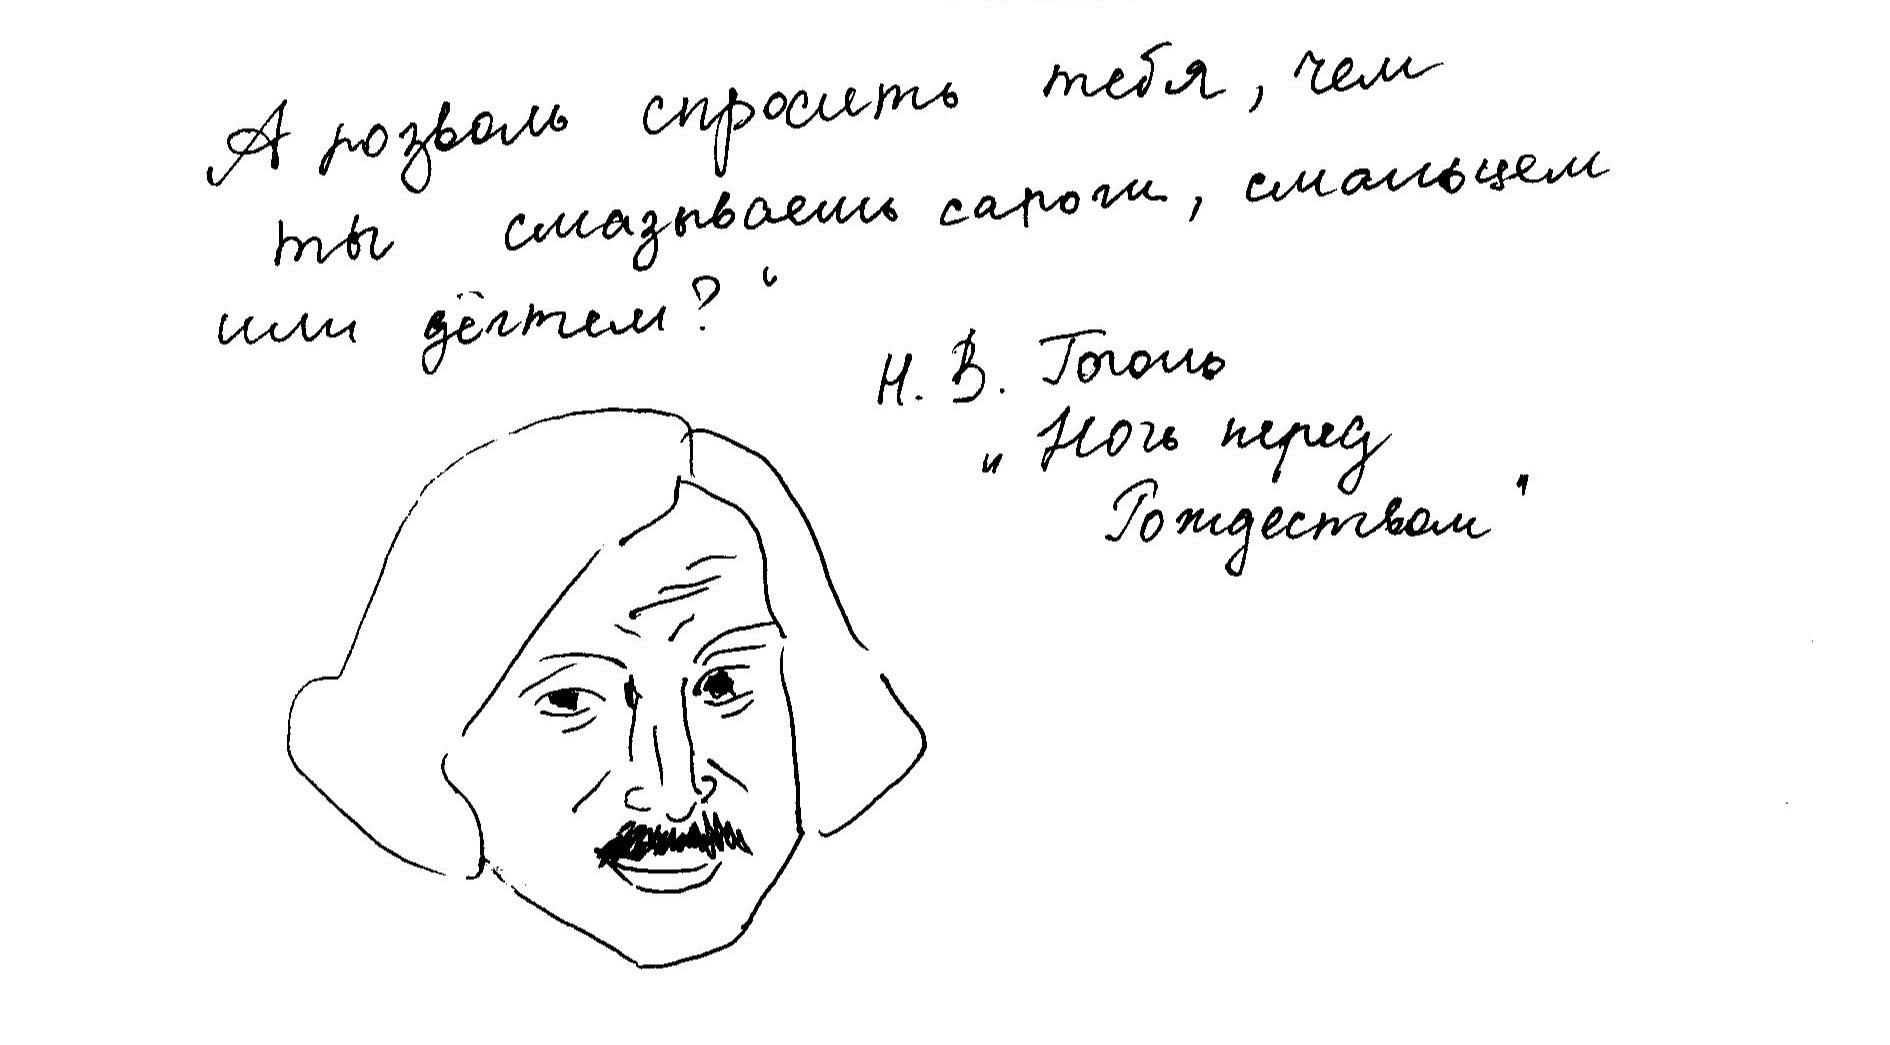 А позволь спросить тебя, чем
ты смазываешь сапоги, смальцем
или дёгтем?"
Н. В. Гоголь
„Ночь перед
Рождеством"